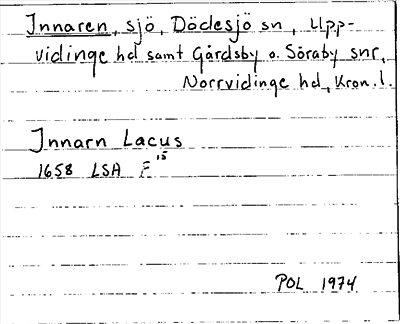 Innaren, sjö, Dädesjö sn, Upp-
vidinge hd samt Gårdsby o. Söraby snr,
Norrvidinge hd, Kron. l.
Innarn Lacus
1658 LSA F 15
POL 1974